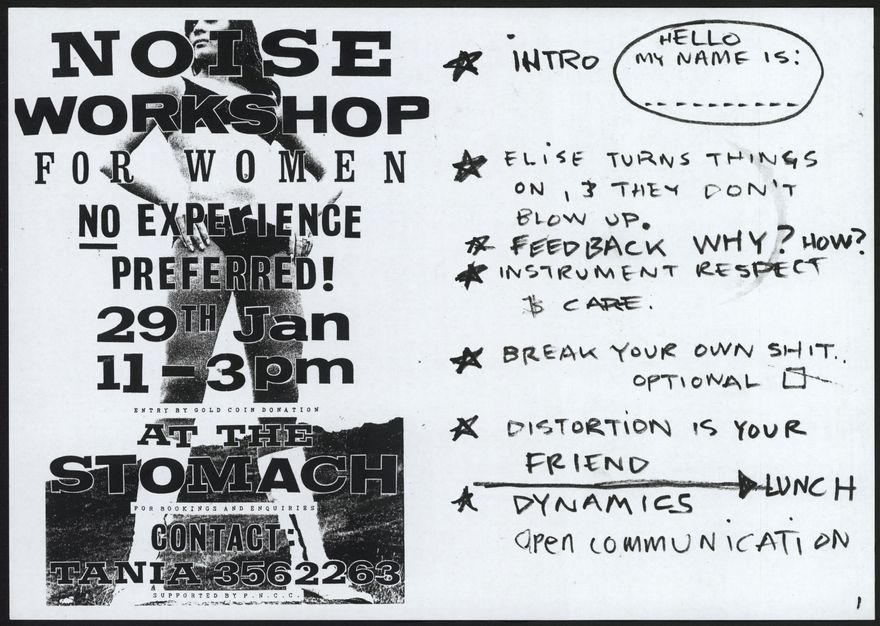 NOISE
WORKSHOP
FOR WOMEN
NO EXPErIENCE
PREFERRED!
29TH Jan
11-3pm
ENTRY BY GOLD COIN DONATION
AT THE
STOMACH
FOR BOOKINGS AND ENQUIRIES
CONTACT:
TANIA 3562263
SUPPORTED BY P.N.C.C.
★ INTRO
HELLO
MY NAME IS:
★ ELISE TURNS THINGS
ON, & THEY DON'T
BLOW UP.
★ FEEDBACK WHY? HOW?
★ INSTRUMENT RESPECT
& CARE.
★ BREAK YOUR OWN SHIT..
OPTIONAL ☐
★ DISTORTION IS YOUR
FRIEND
→ LUNCH
★ DYNAMICS
Open COMMUNICATION
1